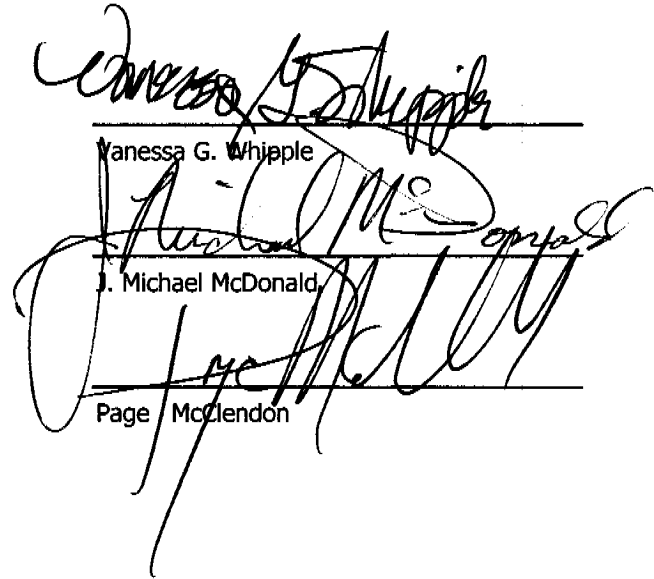 Vanessa G. Whipple
Vanessa G. Whipple
J Michael McDonald
J. Michael McDonald
Page McClendon